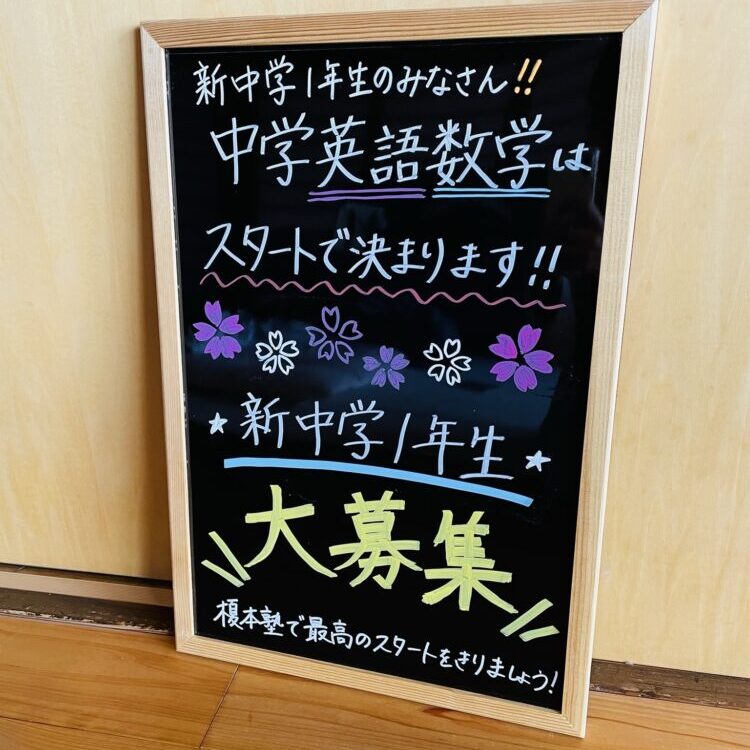 新中学1年生のみなさん!!
中学英語数学は
スタートで決まります!!
新中学1年生
大募集
榎本塾で最高のスタートをきりましょう!